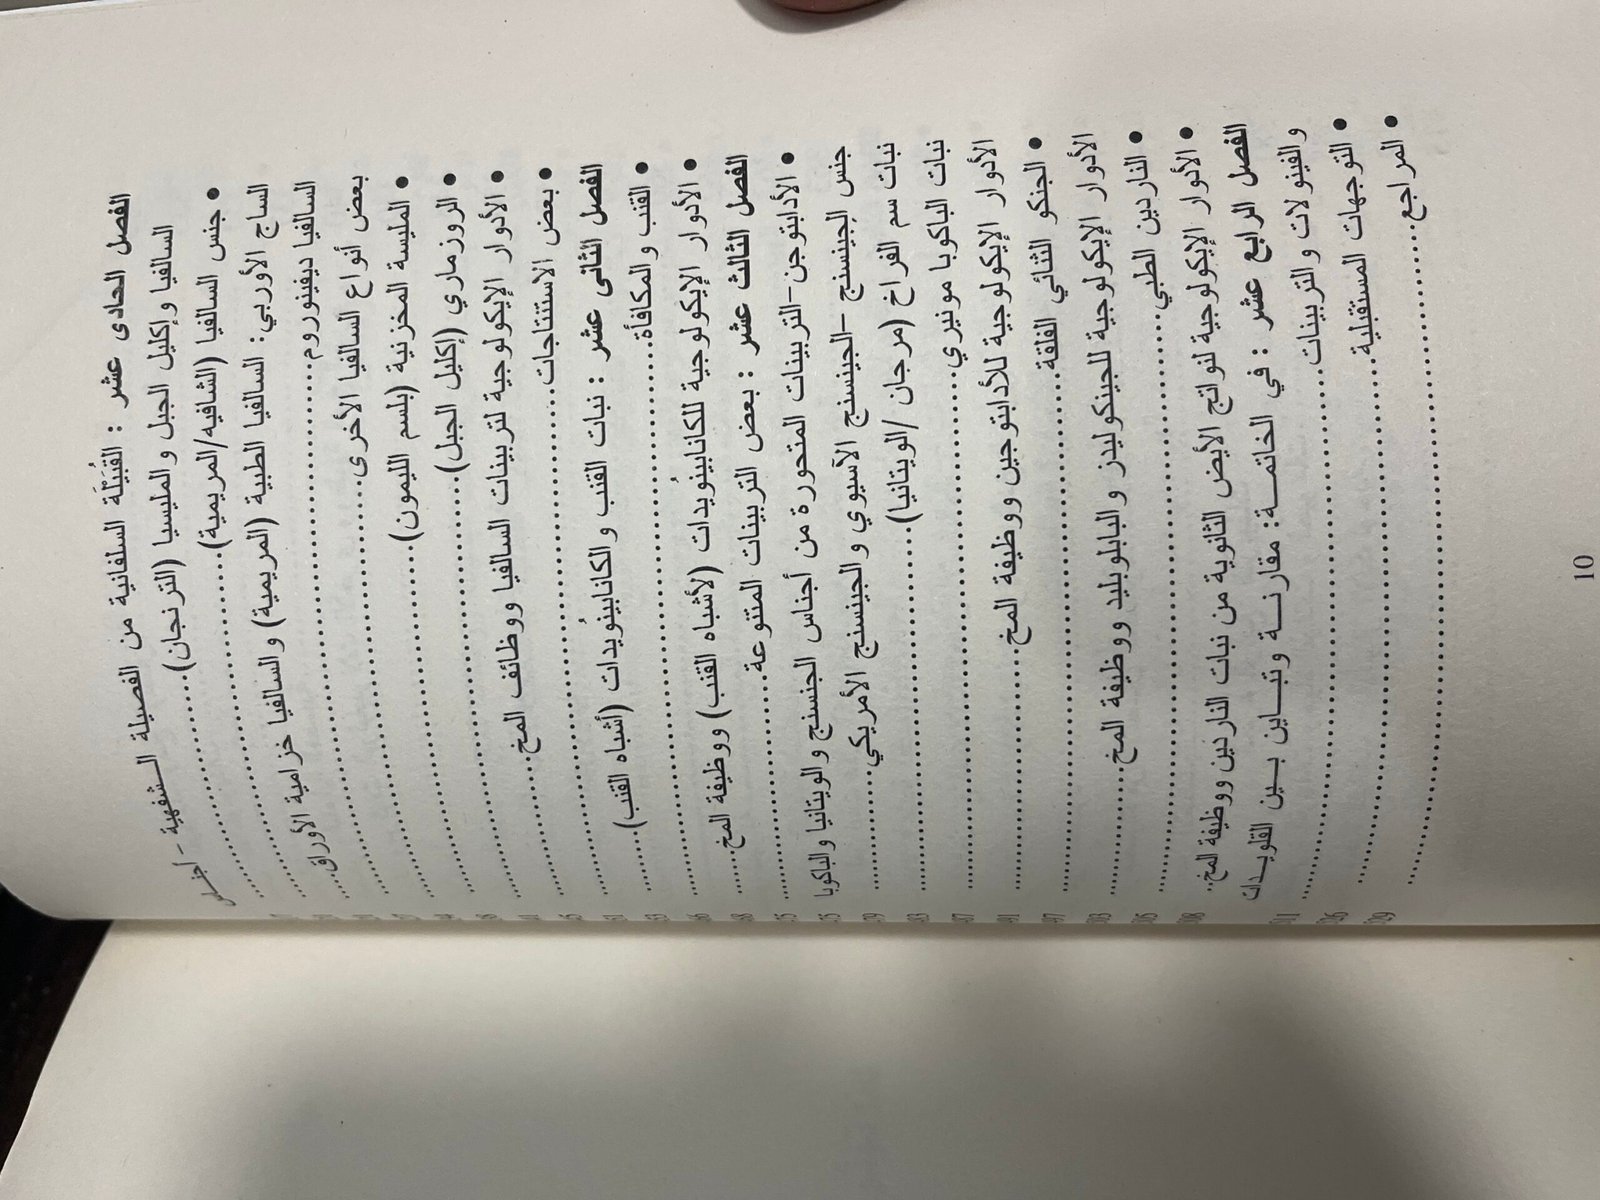 الفصل الحادى عشر : القُبَيْلَة السلفانية من الفصيلة الشفهية - اجناس
السالفيا وإكليل الجبل والمليسيا (الترنجان)
• جنس السالفيا (الشافيه/المريمية)
الساج الأوربي: السالفيا الطبية (المريمية) والسالفيا خزامية الأوراق
السالفيا ديفينوروم
بعض أنواع السالفيا الأخرى
• المليسة المخزنية (بلسم الليمون)
• الروزماري (إكليل الجبل)
• الأدوار الإيكولوجية لتربينات السالفيا ووظائف المخ
• بعض الاستنتاجات
الفصل الثانى عشر : نبات القنب والكانابينُويدات (أشباه القنب)
• القنب والمكافأة
• الأدوار الإيكولوجية للكانابينُويدات (لأشباه القنب) ووظيفة المخ
الفصل الثالث عشر : بعض التربينات المتنوعة
• الأدابتوجن-التربينات المتحورة من أجناس الجنسنج والويتانيا والباكوبا
جنس الجينسنج -الجينسنج الآسيوي والجينسنج الأمريكي
نبات سم الفراخ (مرجان /الويتانيا)
نبات الباكوبا مونيري
الأدوار الإيكولوجية للأدابتوجين ووظيفة المخ
• الجنكو الثنائي الفلقة
الأدوار الإيكولوجية للجينكوليدز والبابلوبليد ووظيفة المخ
• الناردين الطبي
• الأدوار الإيكولوجية لنواتج الأيض الثانوية من نبات الناردين ووظيفة المخ
الفصل الرابع عشر : في الخاتمة: مقارنة وتباين بين القلويدات
والفينولات والتربينات
• التوجهات المستقبلية
• المراجع
10